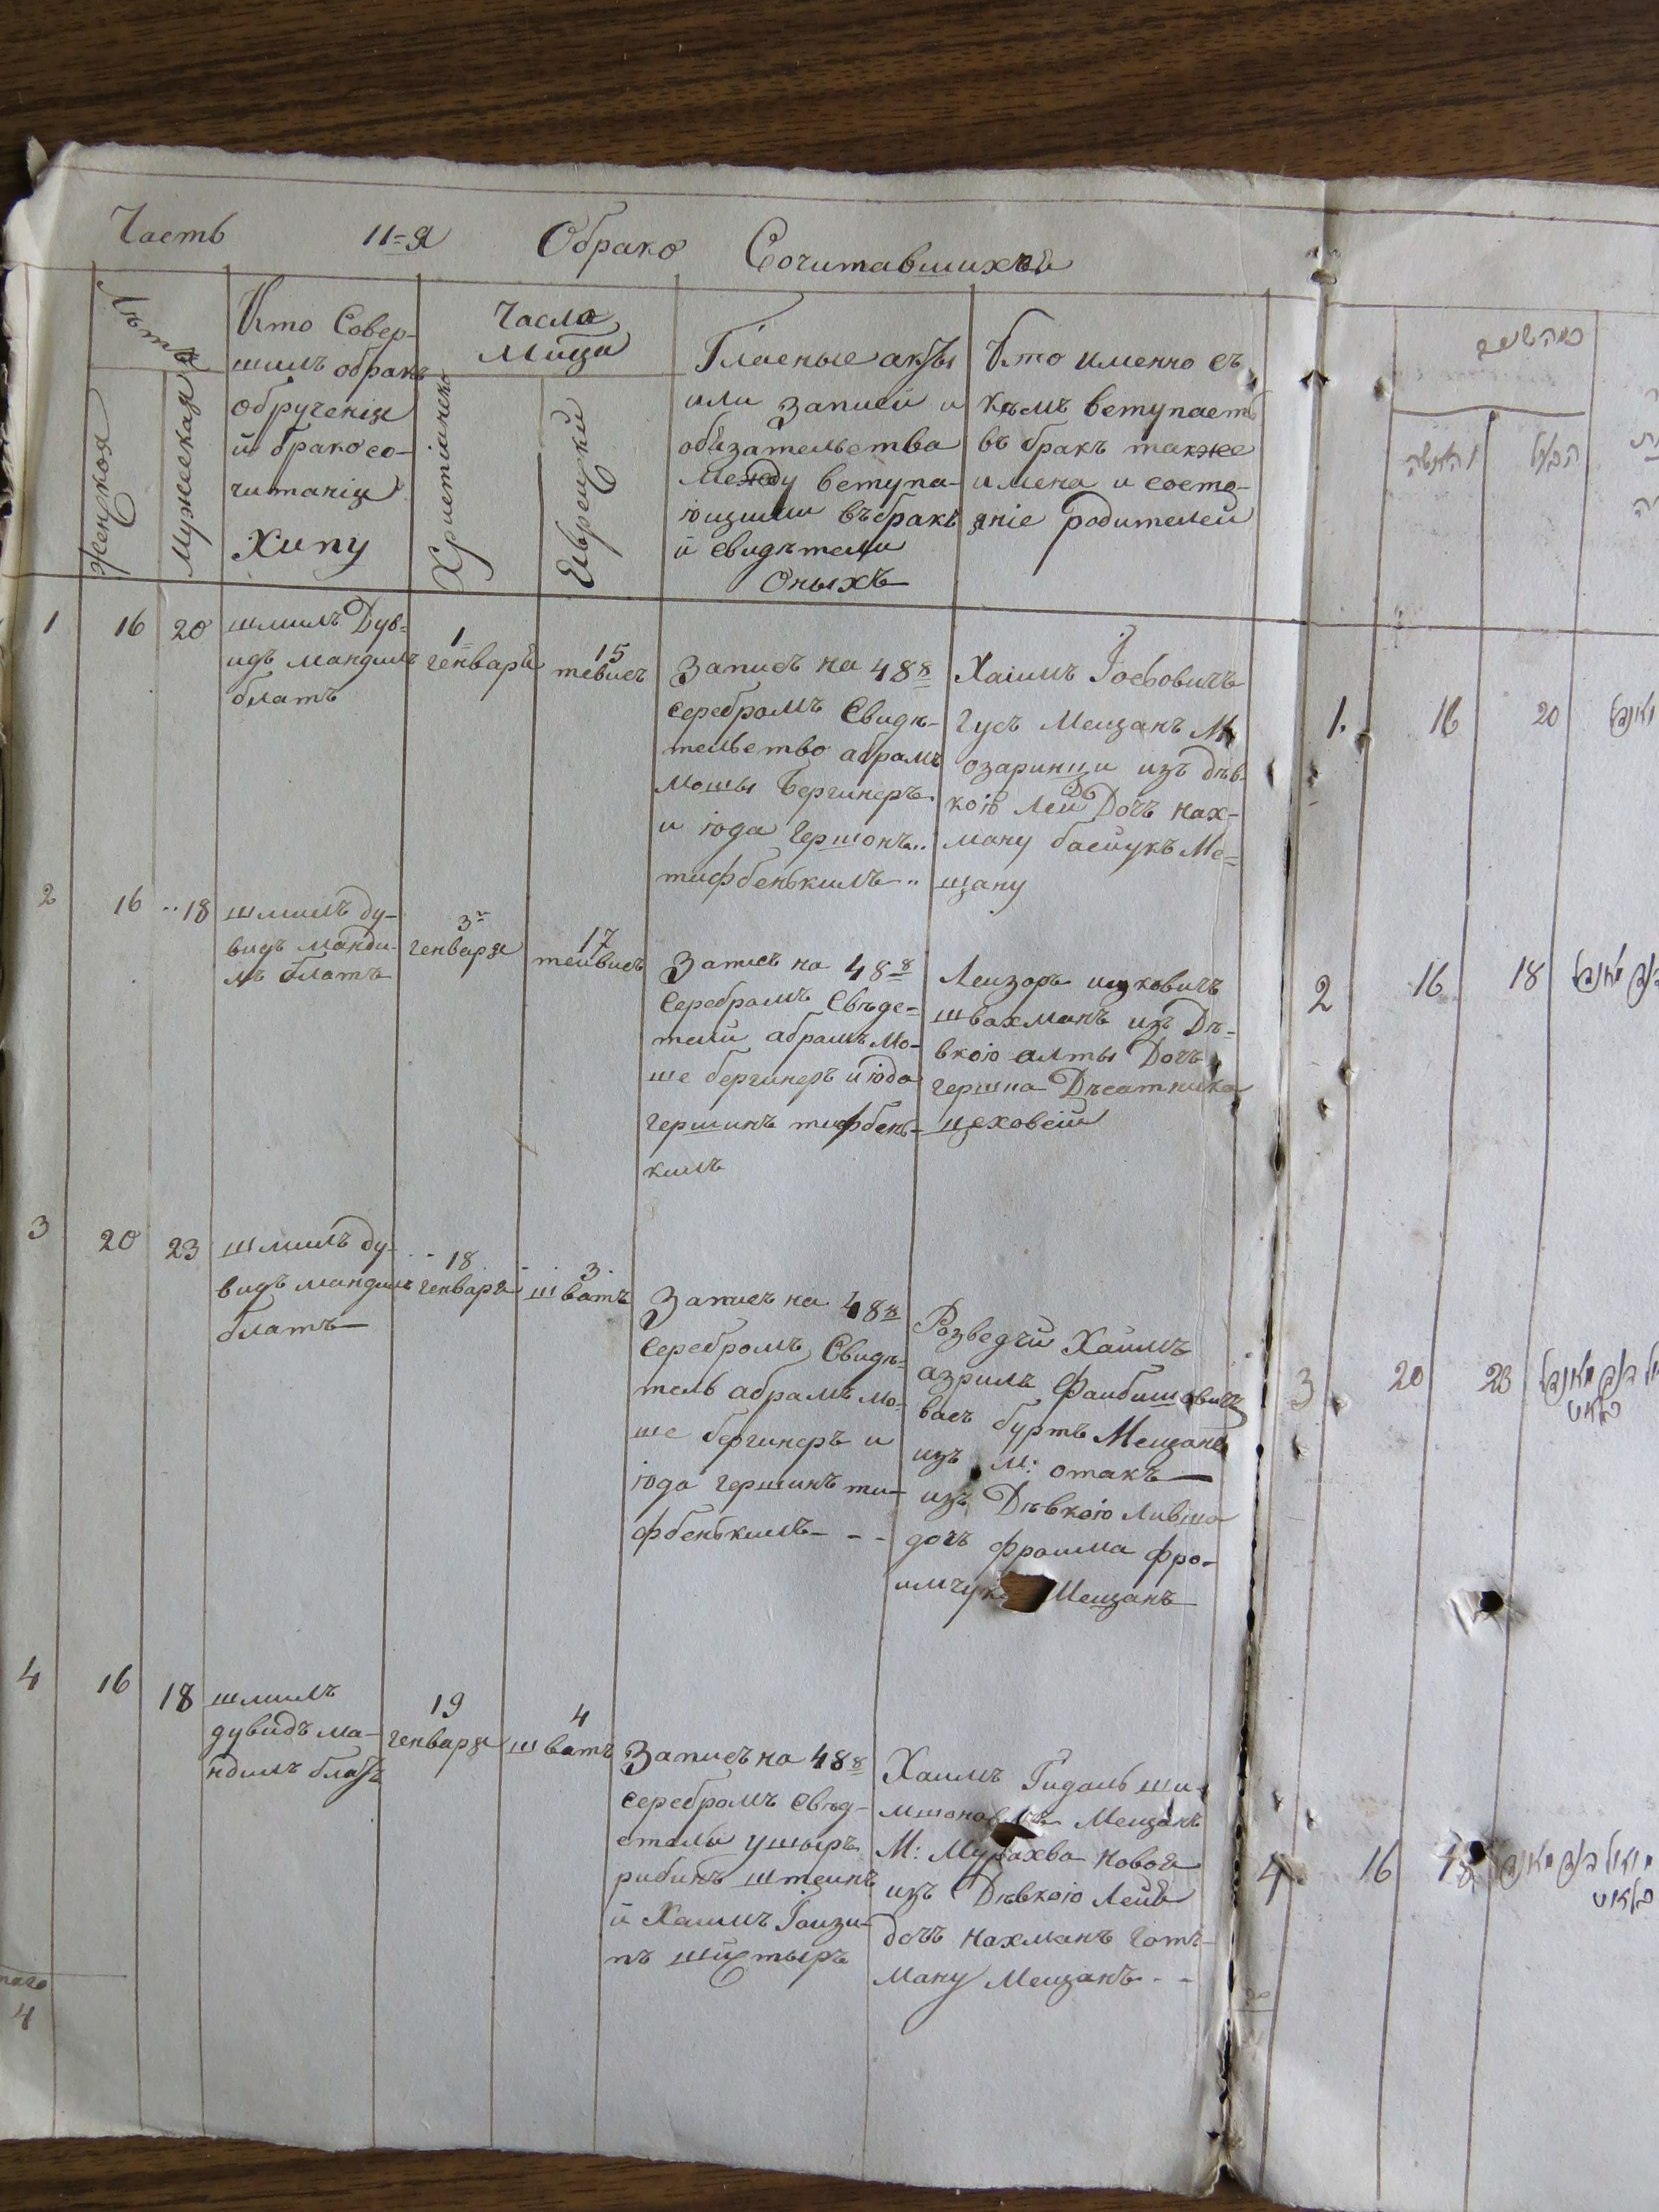 Часть 11=я Обрако Сочитавшихъй
Лѣта
Женская
Мужеская
Кто Совер-
шилъ обракъ
обрученія
й бракосо-
читанія
Хипу
Часла
Мица
Христіанско
Еврейский
Гласные акты
или записи и
обязательства
между вступа-
ющими въбракъ
й свидѣтели
Оныхъ
Кто именно съ
кѣмъ вступаетъ
въ бракъ также
имена и состо-
яніе родителей
1 16 20
шмилъ Дув-
идъ мандилъ
блатъ
1
генваря
15
тевисъ
Записъ на 48 8
серебромъ Свидѣ-
тельство абрамъ
мошы Бергинеръ
и іода Гершонъ
тифбенькилъ
Хаімъ Іосьовичъ
Гусъ Мещанъ М
озаринци изъ дѣв-
кою Леи Дочъ нах-
ману басиукъ Ме=
щану
2 16 18
шмилъ ду-
видъ манди-
лъ блатъ
3
генваря
17
теивисъ
Записъ на 48 8
Серебромъ Свѣде=
тели абрамъ Мо-
ше бергинеръ июда
гершинъ тифбень-
килъ
Леизоръ ицковичъ
швахманъ изъ Дѣ-
вкою алты Дочъ
гершна Дѣсатника
цеховеіи
3 20 23
шмилъ ду-
видъ мандилъ
блатъ
18
генваря
3
шватъ
Записъ на 48 8
Серебромъ Свидѣ-
тель абрамъ мо-
ше бергинеръ и
іода гершинъ ти-
фбенькилъ
Розведчй Хаимъ
азрилъ Фаибишовичъ
васъ буртъ Мещанъ
изъ М: отакъ
изъ Дѣвкою Ливша
дочъ фроима фро-
имчукъ Мещанъ
4 16 18
шмилъ
дувидъ ма-
ндилъ блатъ
19
генваря
4
шватъ
Записъ на 48 8
серебромъ Свѣд-
етелы ушыръ
рибинъ штеинъ
й Хаимъ Іоизи-
пъ шйстыръ
Хаимъ Гидаль ши-
мшоновичъ Мещанъ
М: Мурахва новоя
изъ Дѣвкою Леия
дочъ нахманъ готъ-
ману Мещанъ
4
הבעל
והאשה
1. 16 20
2 16 18
3 20 23
4 16 18